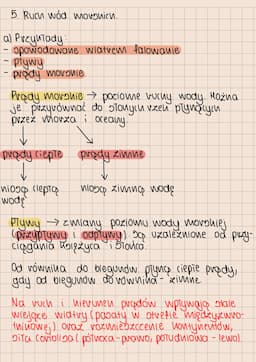 5. Ruch wód morskich.
a) Przykłady:
- spowodowane wiatrem falowanie
- pływy
- prądy morskie.
Prądy morskie → poziome ruchy wody. Można
je przyrównać do słonych rzek płynących
przez morza i oceany.
prądy ciepłe prądy zimne
niosą ciepłą niosą zimną wodę
wodę
Pływy → zmiany poziomu wody morskiej
(przypływy i odpływy) są uzależnione od przy-
ciągania Księżyca i Słońca
Od równika do biegunów płyną ciepłe prądy,
gdy od biegunów do równika - zimne.
Na ruch i kierunek prądów wpływają stałe
wiejące wiatry (pasaty w strefie międzyzwro-
tnikowej) oraz rozmieszczenie kontynentów,
siła coriolisa (półkuła-prawo, południowa - lewo)